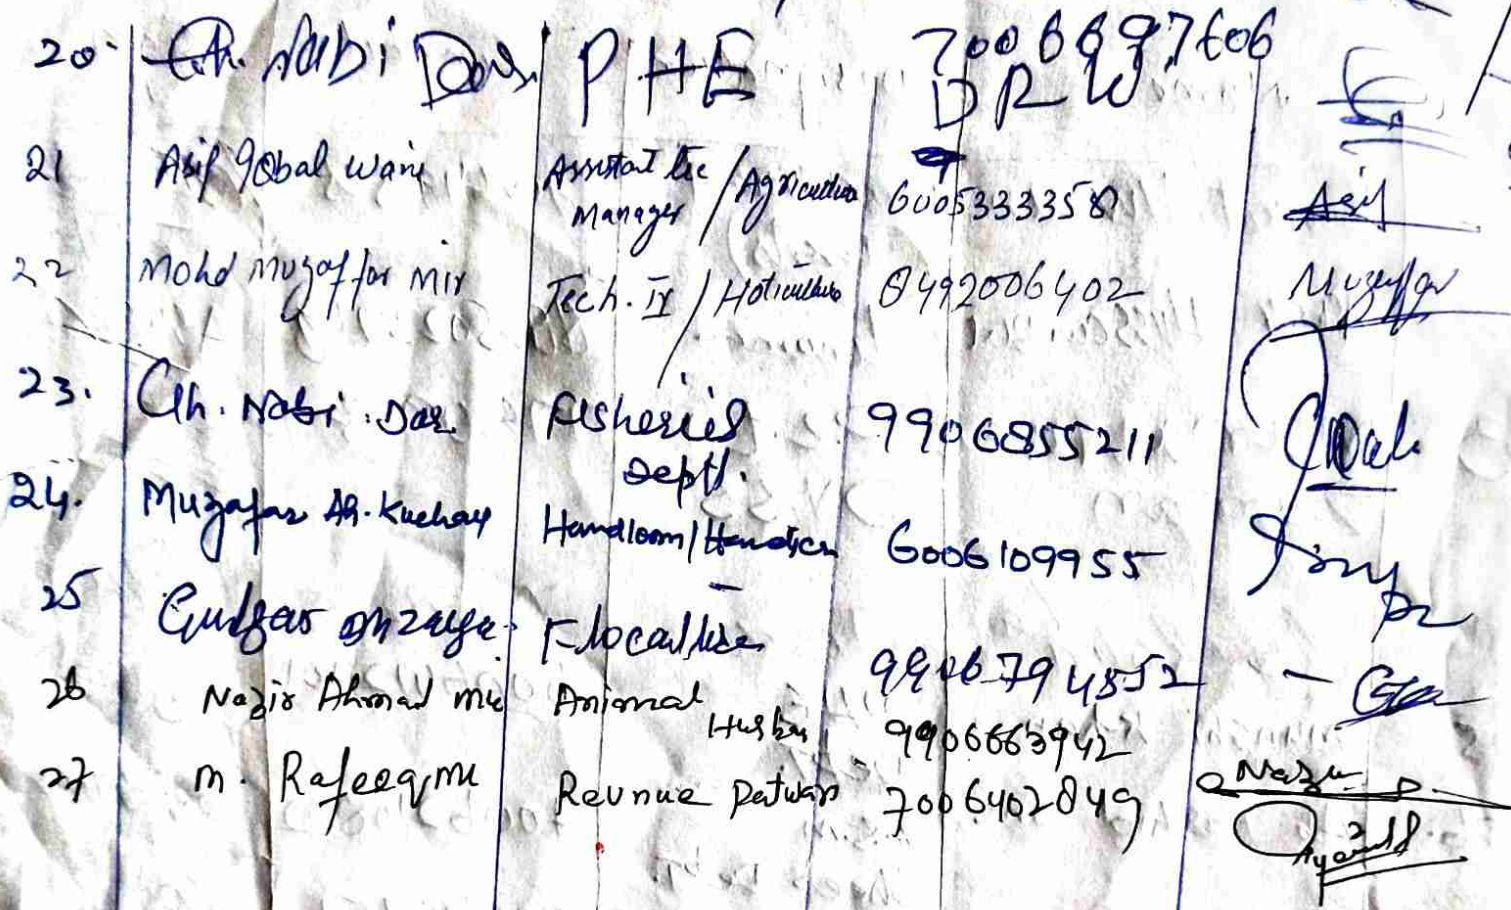 20. Gh. Nabi Dar PHE 7006697606
DRW
21 Asif Iqbal Wani Assistant Tec Manager / Agriculture 6005333358 Asif
22 Mohd Muzaffar Mir Tech. IV / Hoticulture 8492006402 Muzaffar
23. Gh. Nabi. Dar Fisheries Deptt. 9906855211
24. Muzafar Ah. Kuchay Handloom / 6006109955
25 Gulzar 9906794552
26 Nazir Ahmad Mir Animal Husban 9906663942 Nazir
27 M. Rafeeq Mir Revnue Patwari 7006402849